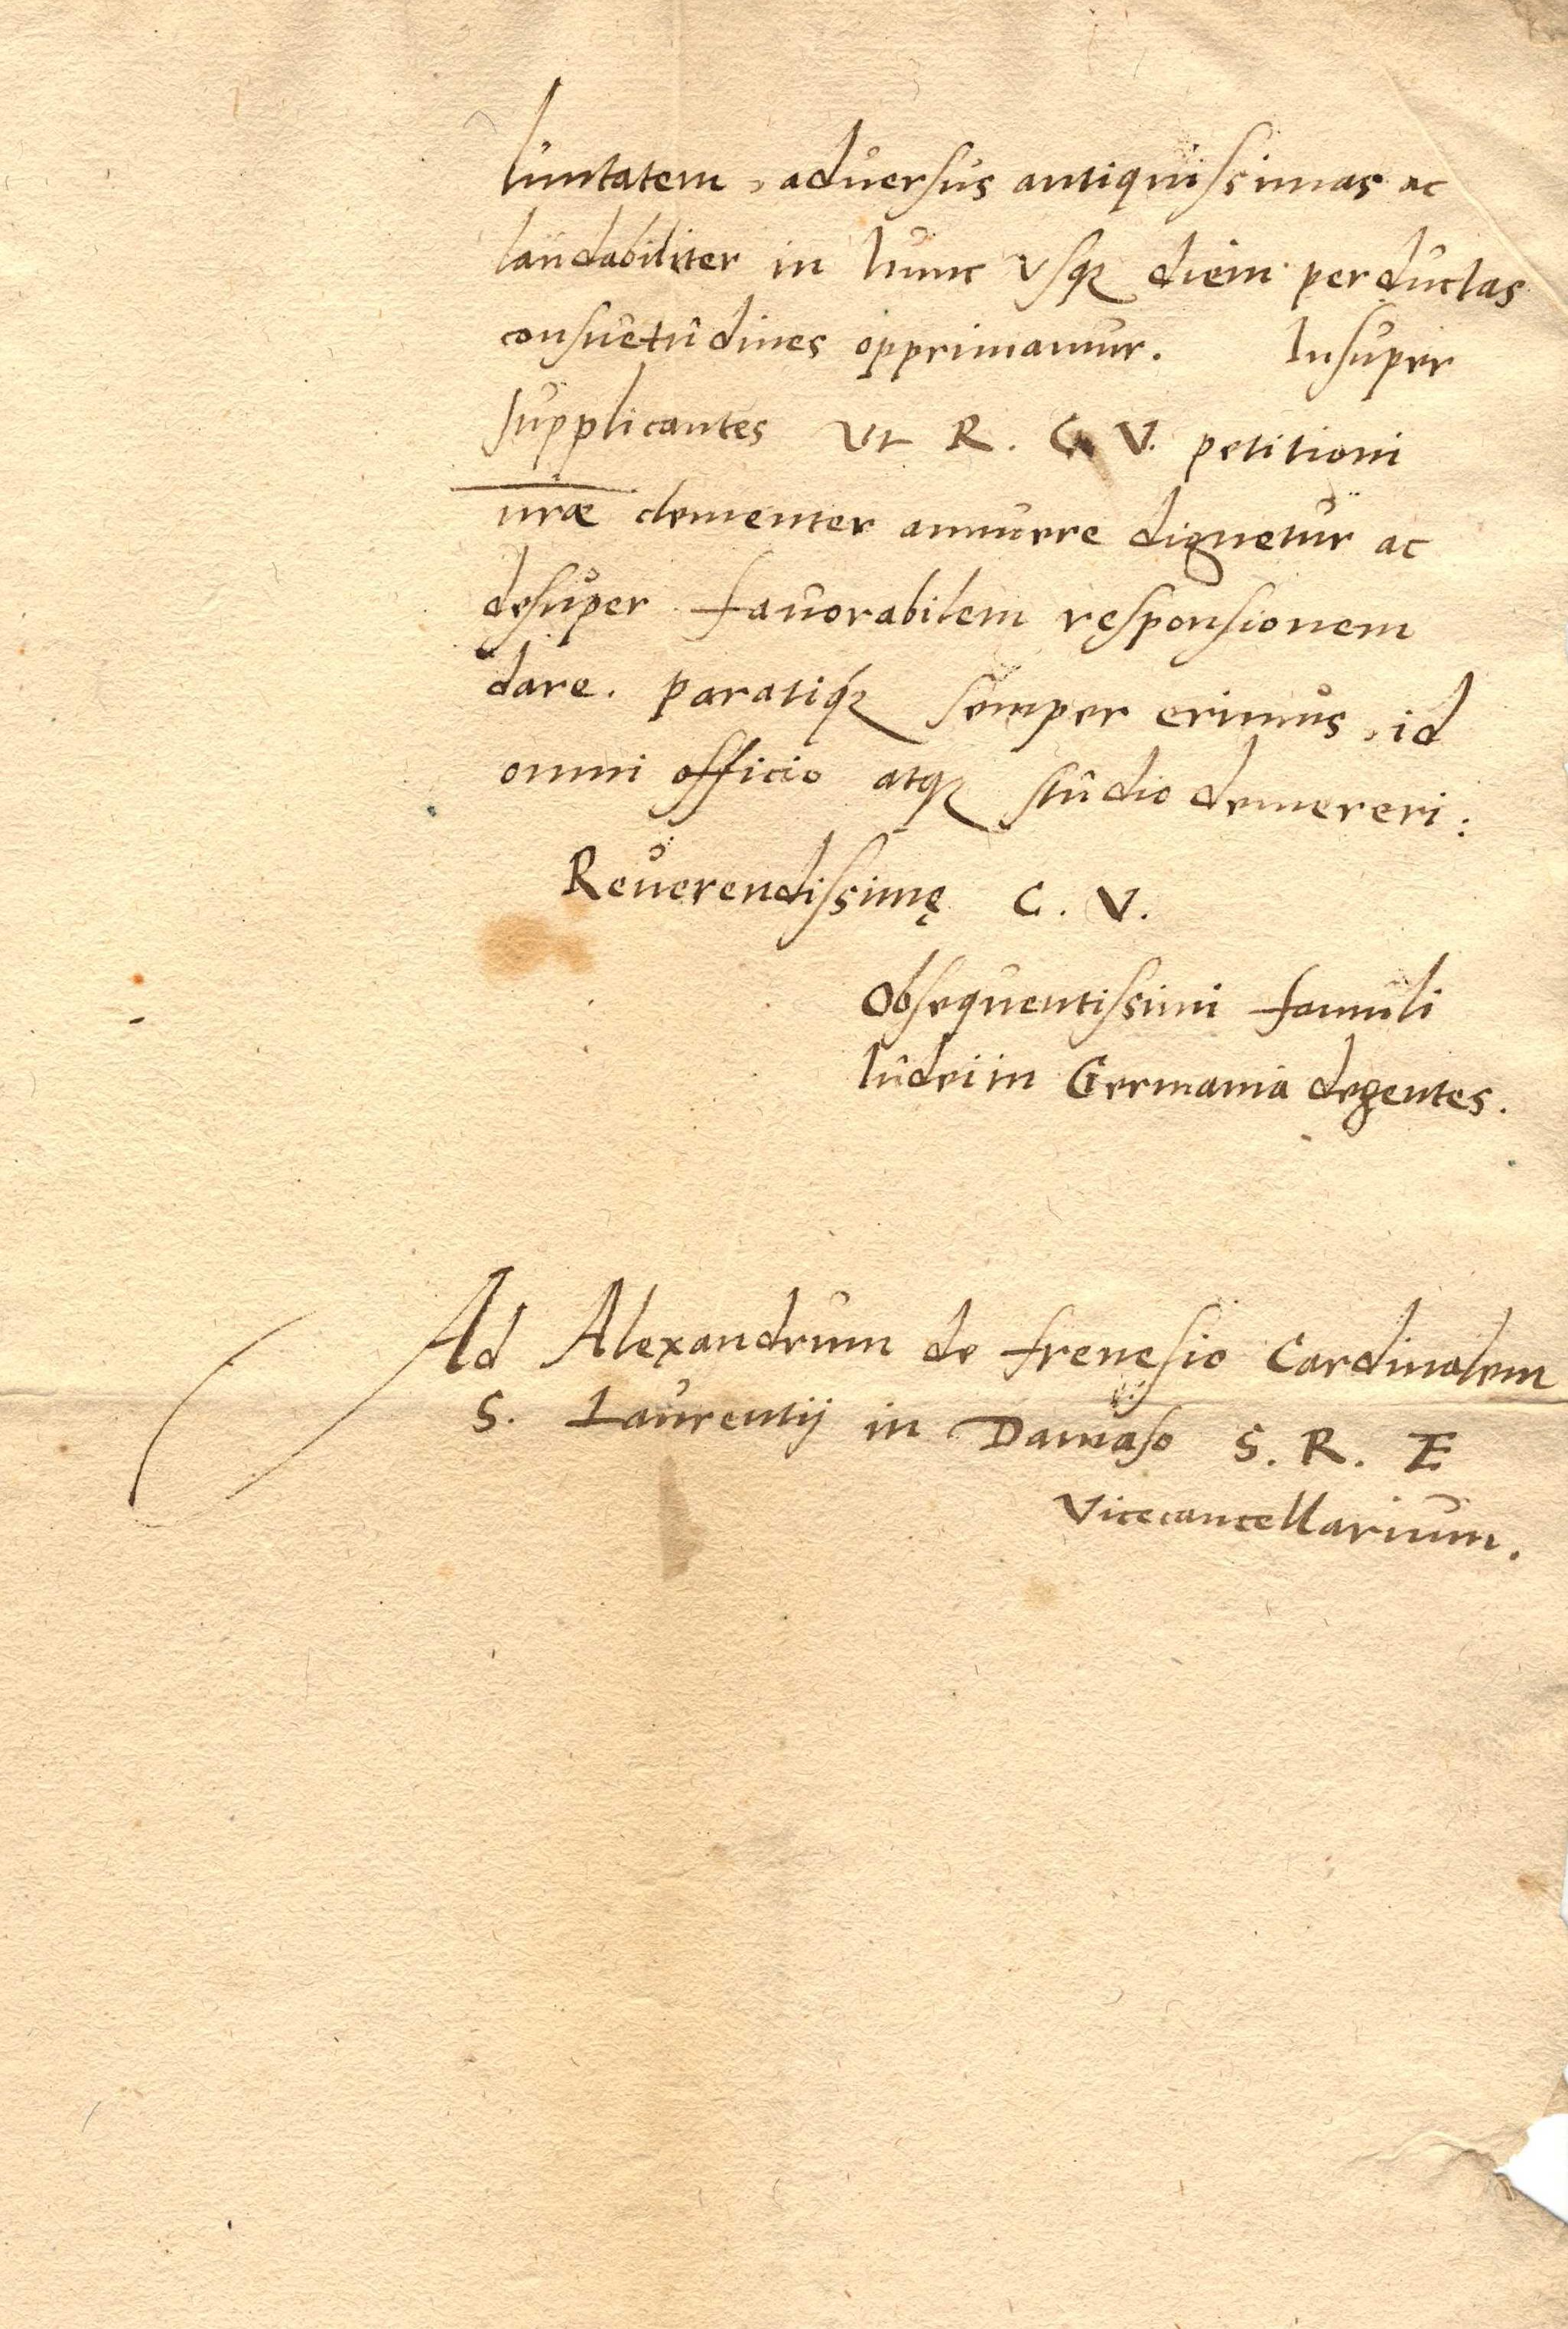 luntatem, aduersus antiquissimas ac
laudabiliter in hunc vsq3 diem perductas
consuetudines opprimamur. Insuper
supplicantes Vt R. C. V. petitioni
nræ clementer annuere dignetur ac
desuper fauorabilem responsionem
dare. paratiq3 semper erimus, id
omni officio atq3 studio demereri:
Reuerendissimę C. V.
Obsequentissimi famuli
Iudei in Germania degentes.
Ad Alexandrum de frenesio Cardinalem
S. Laurentij in Damaso S. R. E
Vicecancellarium.